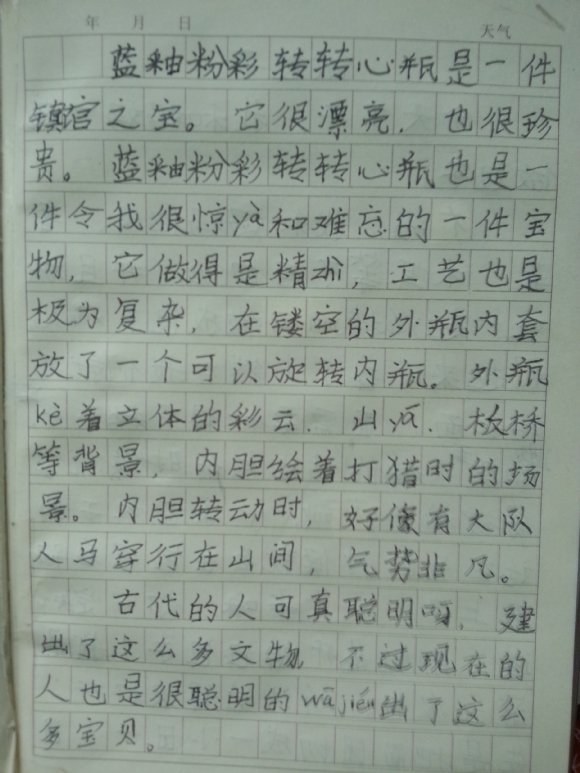 年 月 日 天气
蓝釉粉彩转转心瓶是一件
镇宫之宝。它很漂亮,也很珍
贵。蓝釉粉彩转转心瓶也是一
件令我很惊yà和难忘的一件宝
物,它做得是精zhì,工艺也是
极为复杂,在镂空的外瓶内套
放了一个可以旋转内瓶。外瓶
kè着立体的彩云.山yá.板桥
等背景,内胆绘着打猎时的场
景。内胆转动时,好像有大队
人马穿行在山间,气势非凡。
古代的人可真聪明呀,建
出了这么多文物,不过现在的
人也是很聪明的wājiéu出了这么
多宝贝。